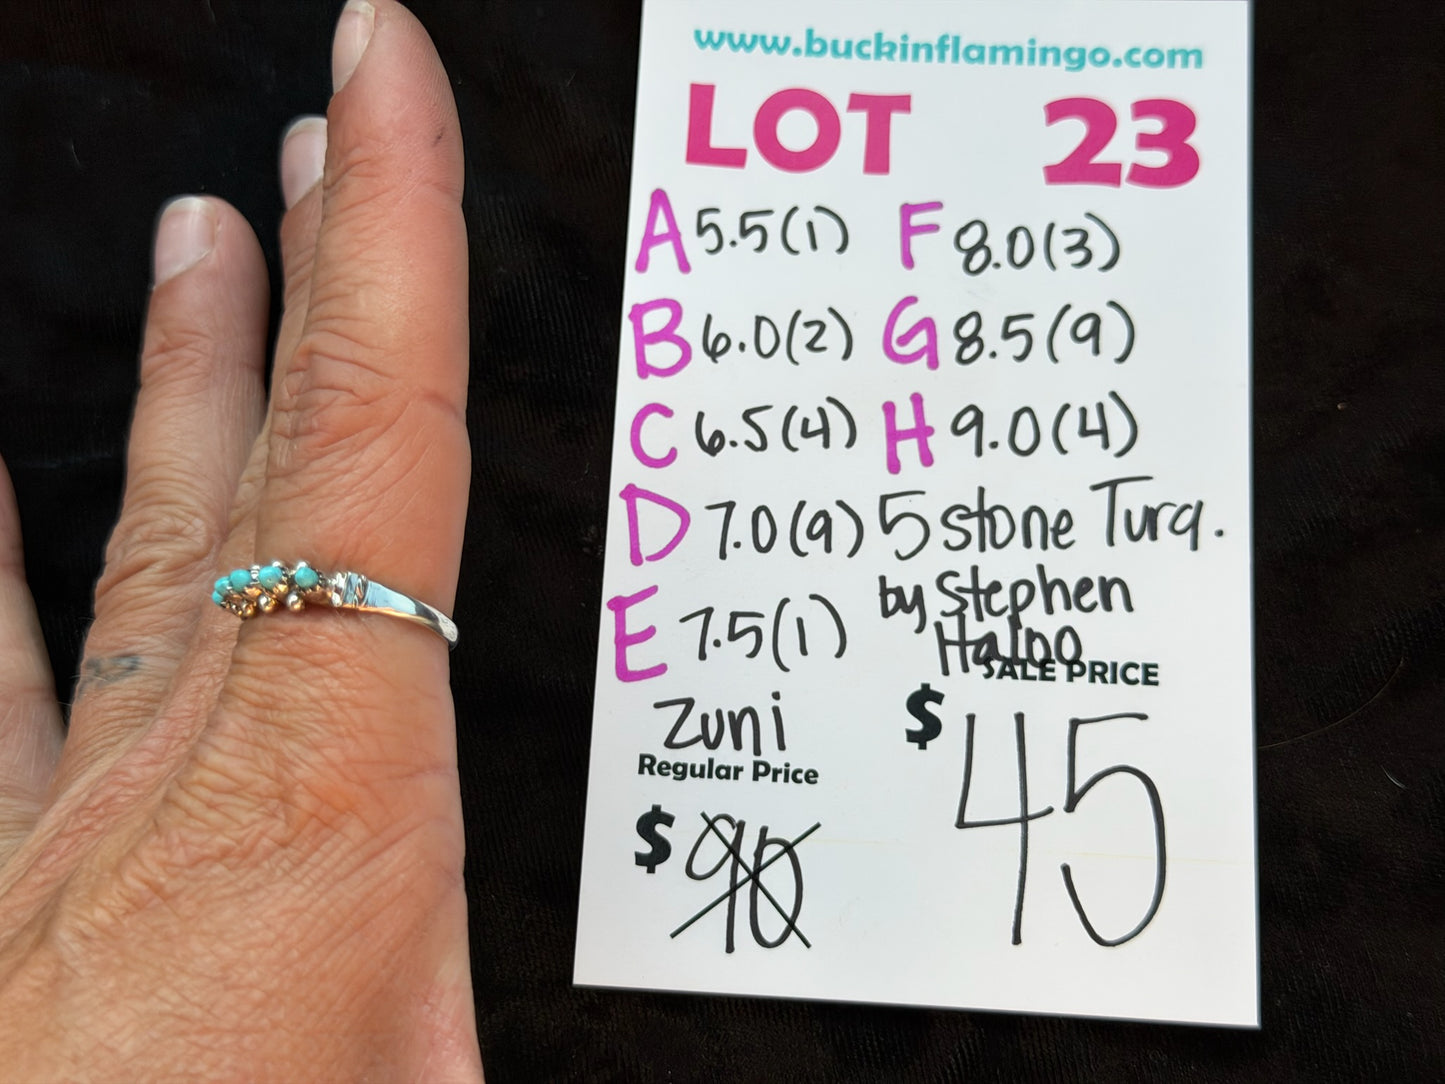 www.buckinflamingo.com
LOT 23
A 5.5(1) F 8.0(3)
B 6.0(2) G 8.5(9)
C 6.5(4) H 9.0(4)
D 7.0(9) 5 stone Turq.
E 7.5(1) by Stephen
Haloo
Zuni
SALE PRICE
$ 45
Regular Price
$ 90